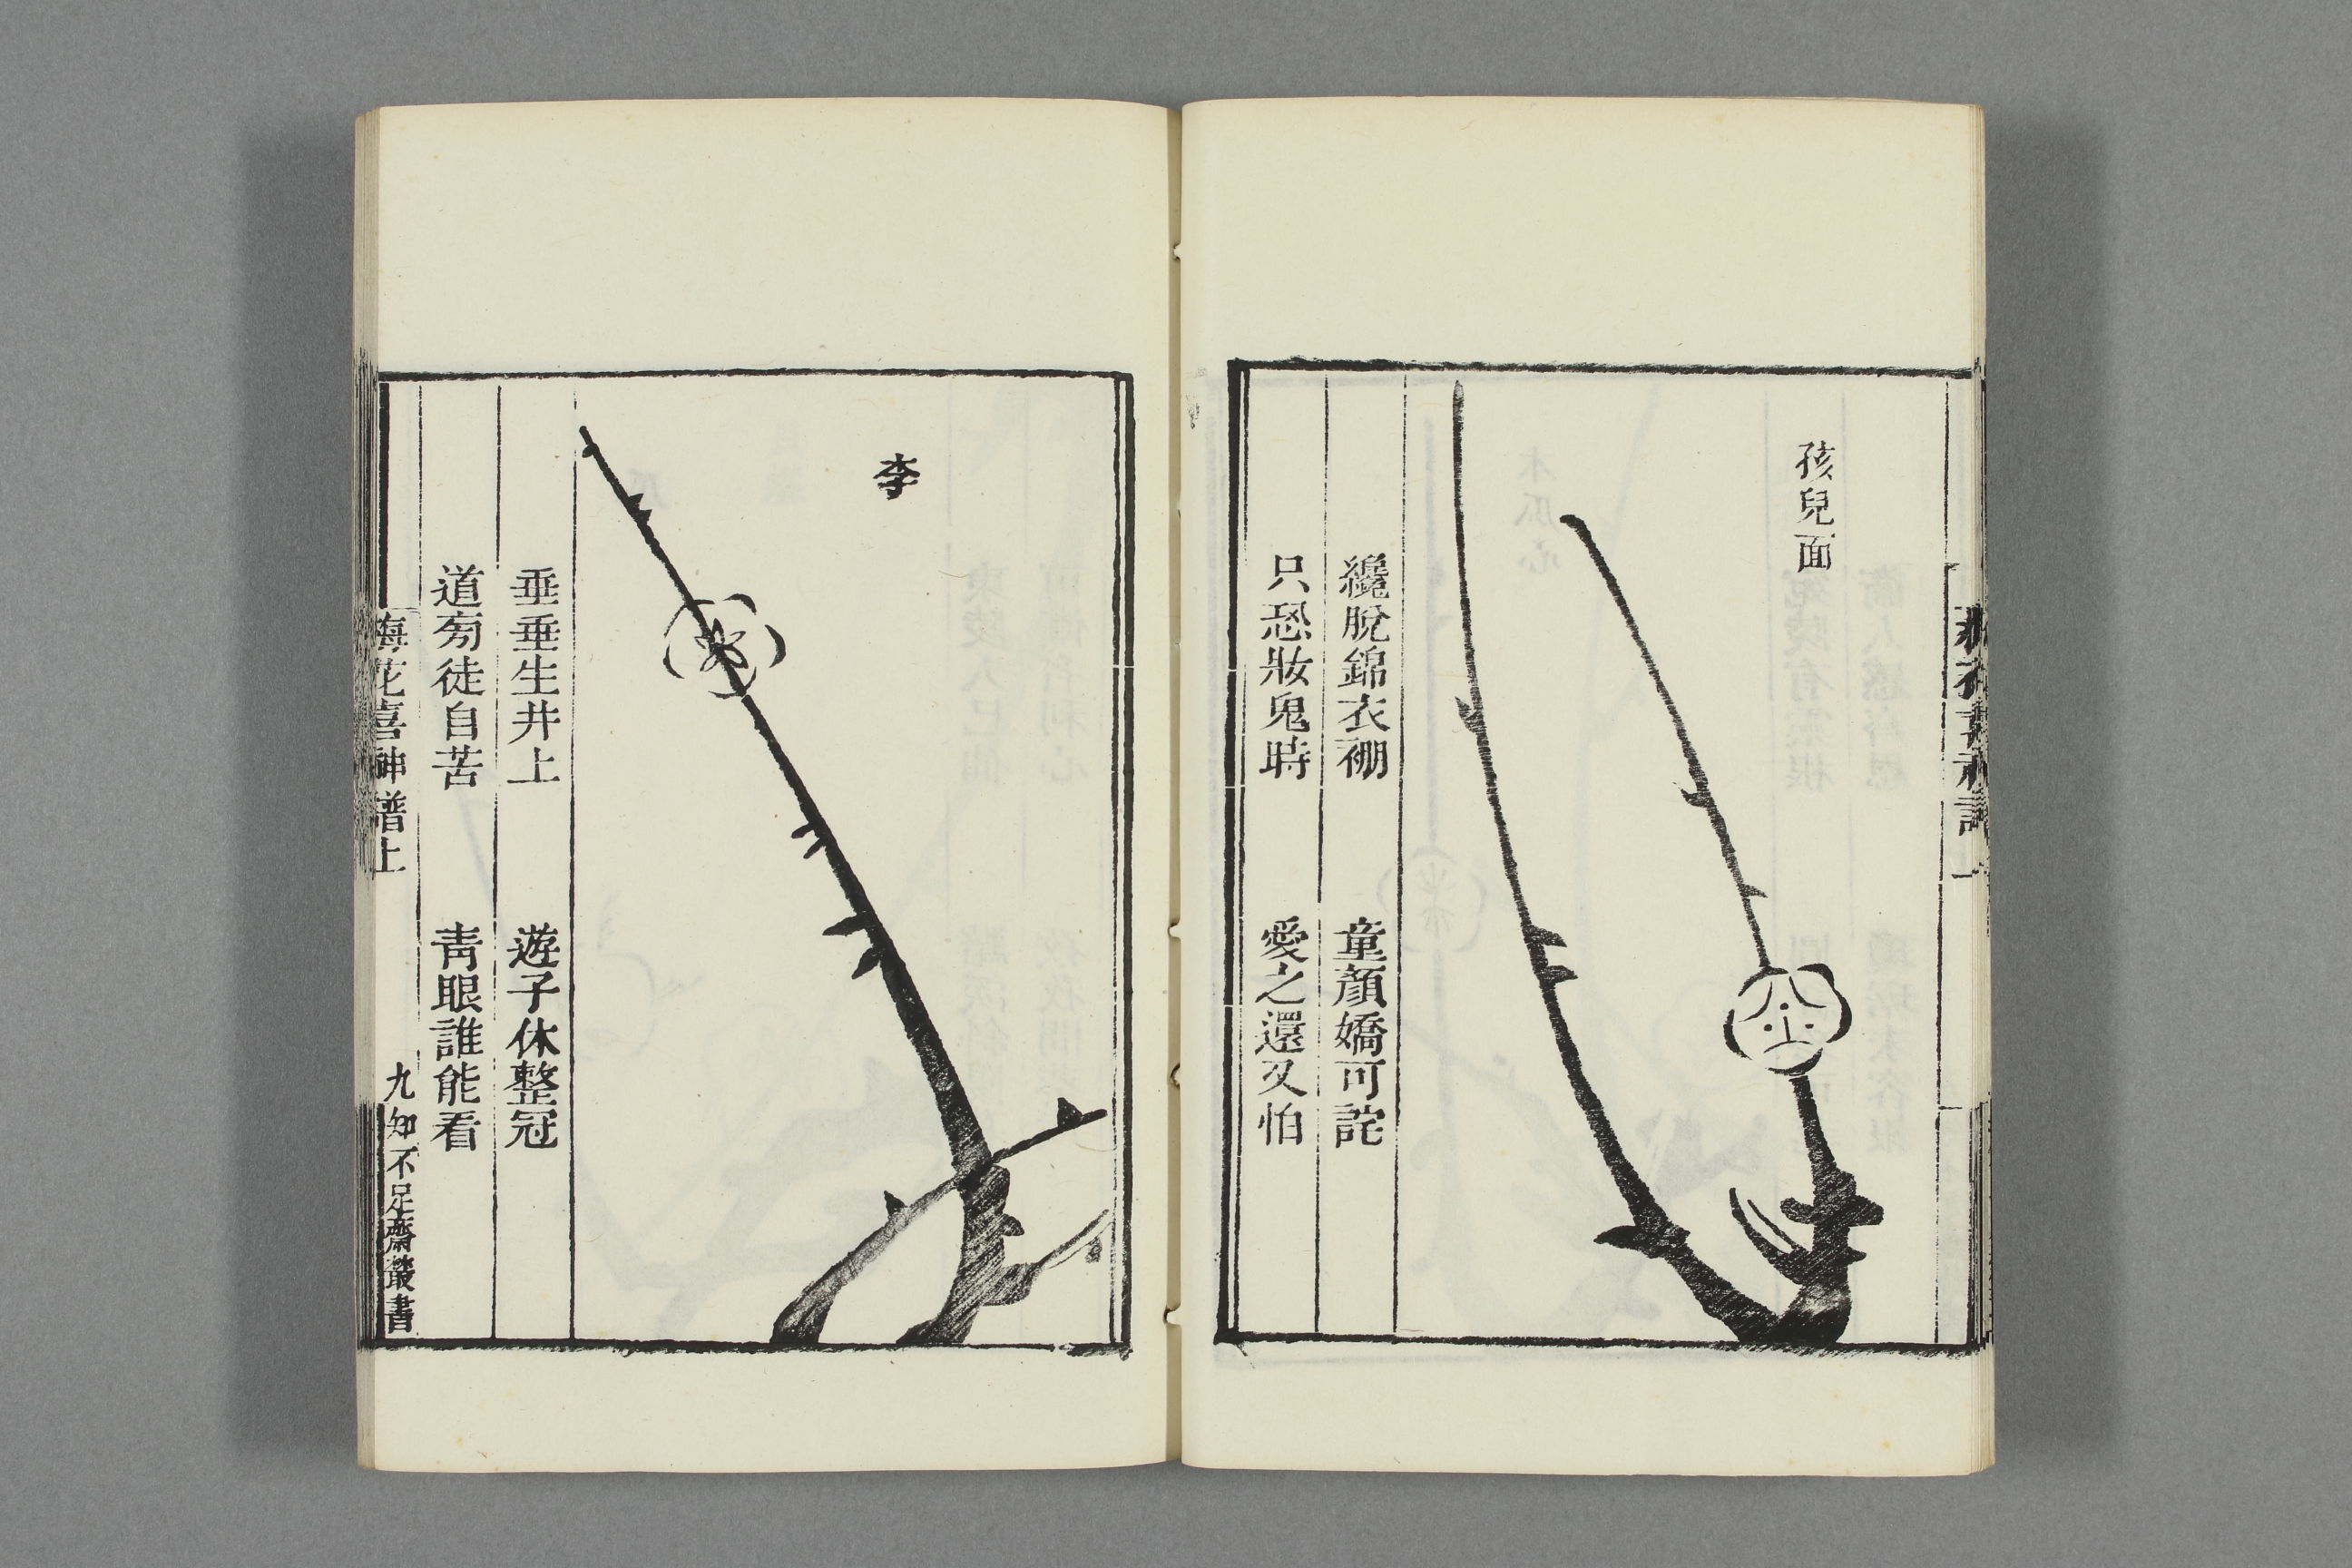 孩兒面
纔脫錦衣棚　童顏嬌可詫
只恐妝鬼時　愛之還又怕
李
垂垂生井上　遊子休整冠
道旁徒自苦　靑眼誰能看
梅花喜神譜上　九　知不足齋叢書